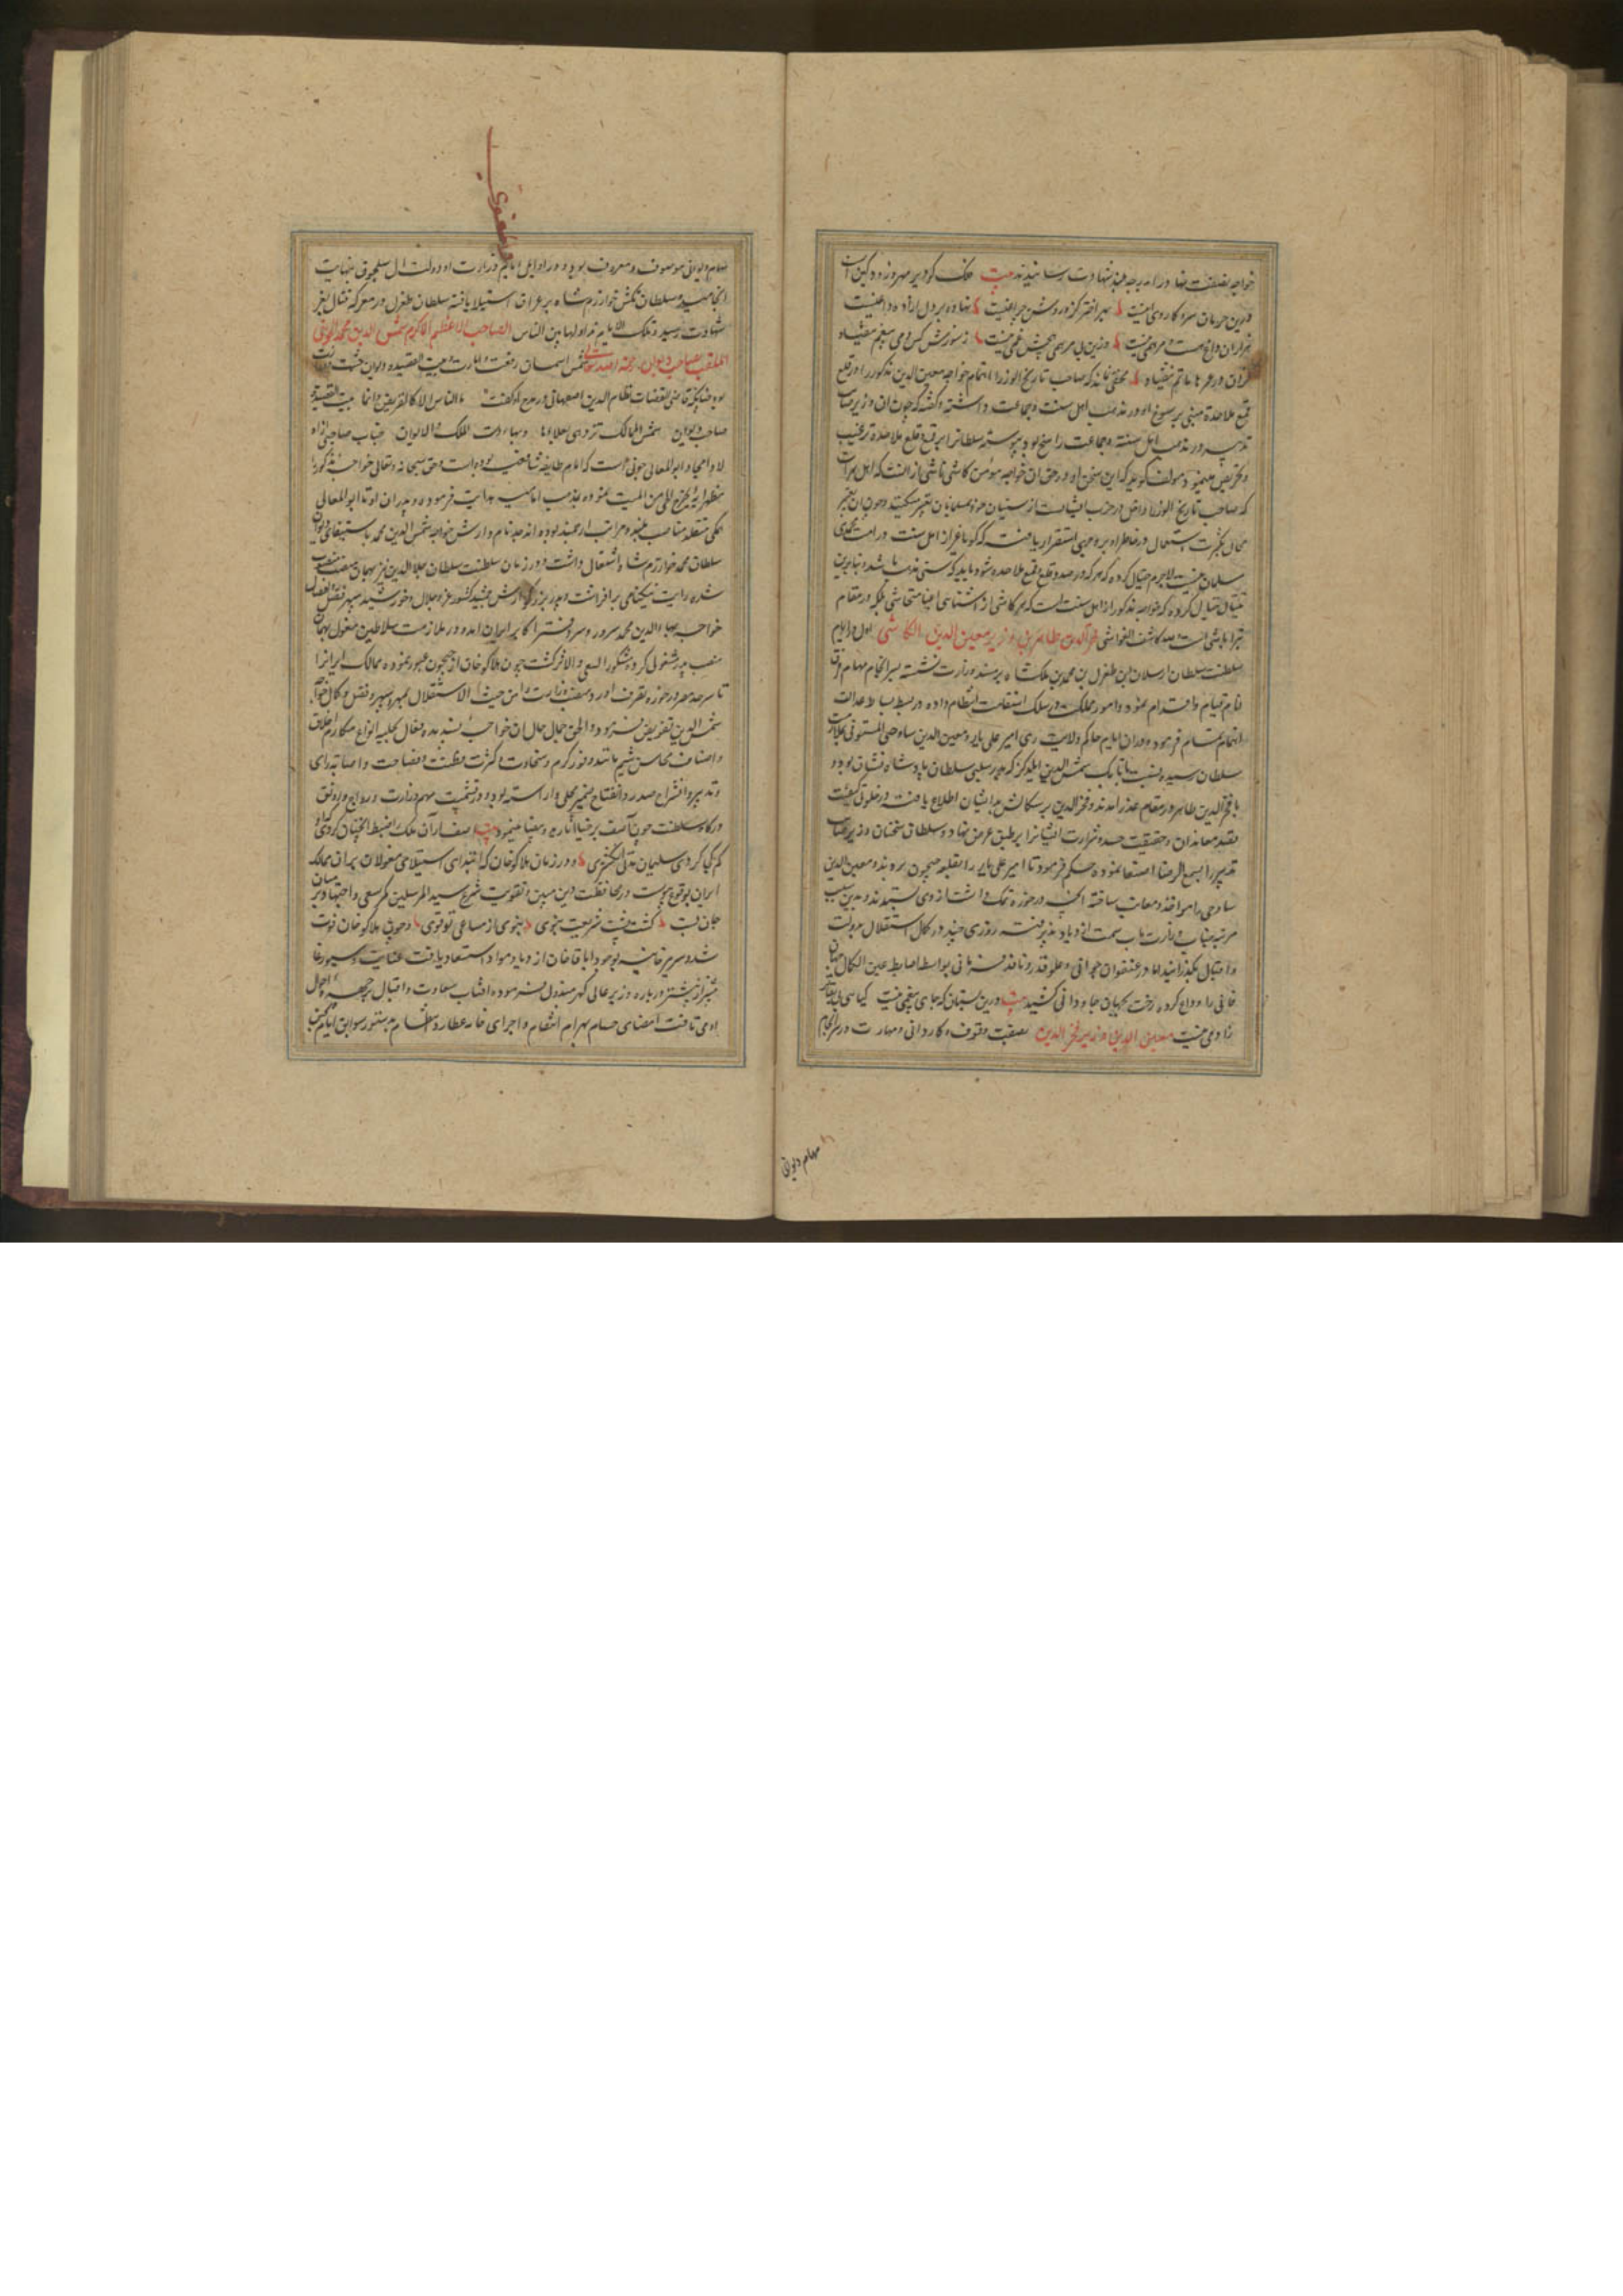 خواجه بصفت نهاد و را بدرجه بلند شهادت رسانیدند بیت فلک کو دیر مهر و زود کین است
درین حرمان سرا کار وی اینست سر اختر گزو روشن چراغیست نهاده بر دل آزاده داغیست
هزاران داغ هست و مرهمی نیست وزین بی مرهمی هیچش غمی نیست ز سوزش کس دمی بیغم
در عمرها ماتم مخفی نماند که صاحب تاریخ الوزرا اهتمام خواجه معین الدین مذکور را در قلع
و قمع ملاحده مبنی بر رسوخ او در مذهب اهل سنت و جماعت داشته و گفته که چون آن وزیر صائب
تدبیر در مذهب اهل سنت و جماعت راسخ بود پیوسته سلطانرا بر قمع و قلع ملاحده ترغیب
و تحریص مینمود مولف گوید که این سخن او در حق آن خواجه مؤمن کاشی ناشی از آنست که اهل هرات
که صاحب تاریخ الوزرا داخل در حزب ایشانست از سنیان خود بمسلمانان تعبیر میکنند و چون آن تعبیر
محال بکثرت استعمال در خاطر او بر وجهی استقرار یافته که گویا غیر از اهل سنت در امت محمدی
مسلمان نیست لاجرم خیال کرده که هر که در صدد قلع و قمع ملاحده شود باید که سنی مذهب باشد و بنابرین
خیال کرده که خواجه مذکور از اهل سنت است که هر کاشی از آشناسی ایشان متحاشی بلکه در مقام
تبرا باشی است فخر الدین طاهر بن وزیر معین الدین الکاشی اول در ایام
سلطنت سلطان ارسلان بن طغرل بن محمد بن ملک شاه بر مسند وزارت نشسته بسرانجام مهام فرق
انام قیام و اقدام نمود و امور مملکت در سلک استقامت انتظام داده در بسط بساط عدالت
اهتمام تمام فرمود و در آن ایام حاکم ولایت ری امیر علی بار و معین الدین ساوجی المستوفی بملازمت
سلطان رسیده نسبت باتابک شمس الدین ایلدکز که پدر سلبی سلطان پادشاه نشان بود و
با فخر الدین طاهر در مقام غدر آمدند و فخر الدین بر سکالش ایشان اطلاع یافته در خلوتی کیفیت
قصد معاندان و حقیقت حسد و شرارت ایشانرا بر طبق عرض نهاد و سلطان سخنان وزیر صائب
تدبیر را بسمع الرضا اصغا نموده حکم فرمود تا امیر علی بار را بقلعه جیحون بردند و معین الدین
ساوجی را مواخذ و معاتب ساخته آنچه در حوزه تملک داشت از وی ستدند و بدین سبب
مرتبه جناب وزارت مآب سمت ازدیاد پذیرفته روزی چند در کمال استقلال بدولت
و اقبال بگذرانید اما در عنفوان جوانی و علو قدر و نافذ فرمانی بواسطه اصابت عین الکمال جهان
فانی را وداع کرده رخت بجهان جاودانی کشید بیت درین بستان که جای بیغمی نیست گیاهی بی بقاتر
ز آدمی نیست معین الدین وزیر فخر الدین بصفت وقوف و کاردانی و مهارت در سرانجام
مهام دیوانی
مهام دیوانی موصوف و معروف بود و در اوایل ایام وزارت او دولت آل سلجوق بنهایت
انجامید و سلطان تکش خوارزم شاه بر عراق استیلا یافته سلطان طغرل در معرکه قتال بعز
شهادت رسید و تلک الایام نداولها بین الناس الصاحب الاعظم الاکرم شمس الدین محمد الجوینی
الملقب بصاحب دیوان رحمه الله شمس آسمان رفعت امارت و بیت القصیده دیوان حشمت وزارت
بود چنانکه قاضی القضات نظام الدین اصفهانی در مدح او گفته و الناس الا کالقریض و انما بیت القصیدة
صاحب دیوان شمس الممالک تزدهی بعلاءها وبهاءت الملک والایوان جناب صاحبی از
اولاد امجاد ابوالمعالی جوینی است که امام طایفه شافعیه بوده است و حق سبحانه و تعالی خواجه مذکور را
مظهر آیه یخرج الحی من المیت نموده بمذهب امامیه هدایت فرموده و پدران او تا ابوالمعالی
همگی متقلد مناصب بلند و مراتب ارجمند بوده اند جد نامدارش خواجه شمس الدین محمد باستیفای دیوان
سلطان محمد خوارزم شاه اشتغال داشت و در زمان سلطنت سلطان جلال الدین نیز بهمان منصب منصوب
شده رایت نیکنامی برافراشت و پدر بزرگوارش جمشید کشور عز و جلال و خورشید سپهر فضل و افضال
خواجه بهاء الدین محمد سرور و سر دفتر اکابر ایران آمده در ملازمت سلاطین مغول بهمان
منصب پدر مشغولی کرد و مشکور السعی و الاثر گشت چون هلاکو خان از جیحون عبور نموده ممالک ایرانرا
تا سرحد مصر در حوزه تصرف آورد منصب وزارت را من حیث الاستقلال بمهر سپهر فضل و کمال خواجه
شمس الدین تفویض فرمود و الحق جمال حال آن خواجه پسندیده فعال بحلیه انواع مکارم اخلاق
و اصناف محاسن شیم مانند وفور کرم و سخاوت و کثرت فطنت و فصاحت و اصابت رای
و تدبیر و انشراح صدر و انفتاح ضمیر محلی و آراسته بود و در تمشیت مهم وزارت و رواج و رونق
درگاه سلطنت چون آصف برخیا آثار ید و بیضا مینمود بیت آصف ار آن ملک را ضبط انچنان کردی که او
گم کجا کردی سلیمان مدتی انگشتری و در زمان هلاکو خان که ابتدای استیلای مغولان بر آن ممالک
ایران بوقوع پیوست در محافظت دین مبین و تقویت شرع سید المرسلین کمر سعی و اجتهاد بر میان
جان بست گشت پشت شریعت نبوی بنوی از مساعی تو قوی و چون هلاکو خان فوت
شد و سریر خانیه بوجود اباقا خان ازدیاد مواد استسعاد یافت عنایت و سیورغا
میشی از پیشتر درباره وزیر عالی گهر مبذول فرموده آفتاب سعادت و اقبال بر چهره احوال
او می تافت امضای حسام بهرام انتقام و اجرای خامه عطارد نظام بدستور سوابق ایام